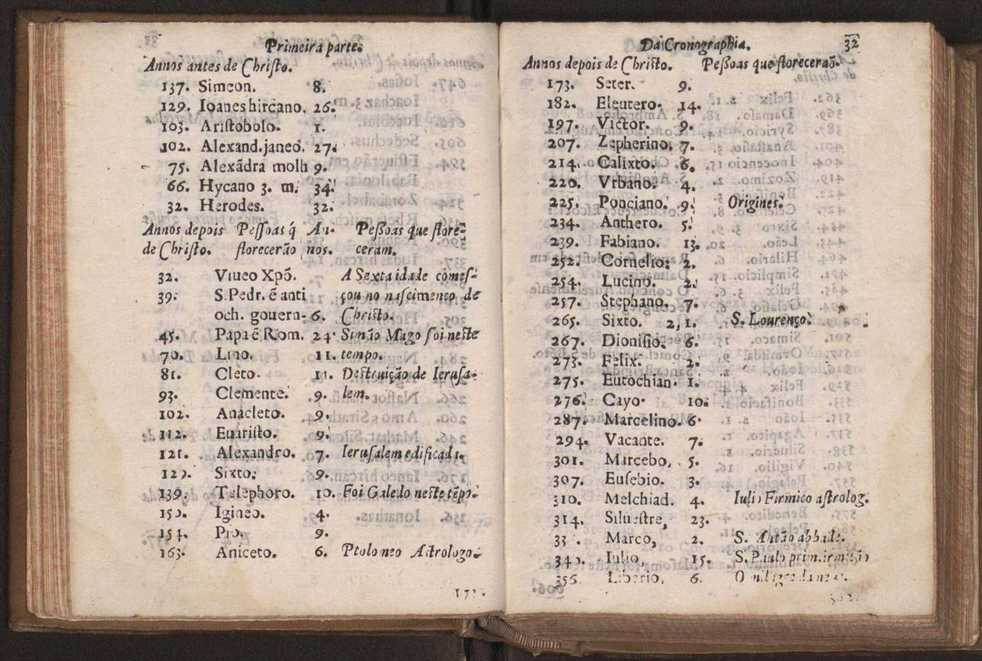 Primeira parte.
Annos antes de Christo.
137. Simeon. 8.
129. Ioanes hircano. 26.
103. Aristobolo. 1.
102. Alexand. janeo. 27.
75. Alexãdra molh 9.
66. Hycano 3. m. 34.
32. Herodes. 32.
Annos depois Pessoas q̃ An- Pessoas que flore-
de Christo. florecerão nos. ceram.
32. Viueo Xpõ. A Sexta idade comes-
39. S. Pedr. ẽ anti çou no nascimento de
och. gouern- 6. Christo.
45. Papa ẽ Rom. 24. Simão Mago foi neste
70. Lino. 11. tempo.
81. Cleto. 11. Destruição de Ierusa-
93. Clemente. 9. lem.
102. Anacleto. 9.
112. Euaristo. 9.
121. Alexandro. 7. Ierusalem edificada.
129. Sixto. 9.
139. Telephoro. 10. Foi Galeno neste tẽpo.
150. Igineo. 4.
154. Pio. 9.
163. Aniceto. 6. Ptolomeo Astrologo.
Da Cronographia. 32
Annos depois de Christo. Pessoas que florecerão.
173. Soter. 9.
182. Eleutero. 14.
197. Victor. 9.
207. Zepherino. 7.
214. Calixto. 6.
220. Vrbano. 4.
225. Ponciano. 9. Origines.
234. Anthero. 5.
239. Fabiano. 13.
252. Cornelio. 2.
254. Lucino. 2.
257. Stephano. 7.
265. Sixto. 2, 1. S. Lourenço.
267. Dionisio. 6.
273. Felix. 2.
275. Eutochian. 1.
276. Cayo. 10.
287. Marcelino. 6.
294. Vacante. 7.
301. Marcebo. 5.
307. Eusebio. 3.
310. Melchiad. 4. Iulio Firmico astrolog.
314. Siluestre, 23.
33 . Marco, 2. S. Antão abbade.
340. Iulio, 15. S. Paulo prim. irmitão
356. Liberio, 6.